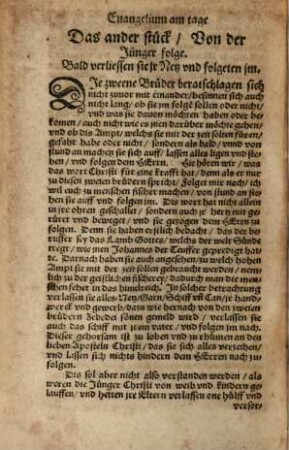 Euangelium am tage
Das ander stück / Von der
Jünger folge.
Bald verliessen sie jr Netz vnd folgeten jm.
DJe zweene Brüder beratschlagen sich
nicht zuuor mit einander / besinnen sich auch
nicht lang / ob sie jm folgē sollen oder nicht /
vnd was sie dauon möchten haben oder be-
komen / auch nicht wie es jnen darüber möchte gehen /
vnd ob dis Ampt / welchs sie mit der zeit solten füren /
gefahr habe oder nicht / sondern als bald / vnnd von
stund an machen sie sich auff / lassen alles ligen vnd ste-
hen / vnd folgen dem HErrn. Sie hören wie / was
das wort Christi für eine krafft hat / denn als er nur zu
diesen zweien brüdern spricht / Folget mir nach / ich
wil euch zu menschen fischer machen / von stund an ste-
hen sie auff vnd folgen jm. Dis wort hat nicht allein
in jre ohren geschallet / sondern auch jr hertz mit ge-
rüret vnd beweget / vnd sie gezogen dem HErrn zu
folgen. Denn sie haben erstlich bedacht / das der be-
ruffer sey das Lamb Gottes / welchs der welt Sünde
tregt / wie jnen Johannes der Teuffer gepredigt hat-
te. Darnach haben sie auch angesehen / zu welch hohem
Ampt sie mit der zeit sollen gebraucht werden / nem-
lich zu der geistlichen fischerey / dadurch man die men-
schen fehet in das himelreich. In solcher betrachtung
verlassen sie alles / Netz / Garn / Schiff vn̄ Can / jr hand-
werck vnd gewerb / dazu wie hernach von den zweien
brüdern Zebedei sönen gemeld wird / verlassen sie
auch das schiff mit jrem vater / vnd folgen jm nach.
Dieser gehorsam ist zu loben vnd zu rhümen an den
lieben Aposteln Christi / das sie sich alles verzeihen /
vnd lassen sich nichts hindern dem HErren nach zu
folgen.
Das sol aber nicht also verstanden werden / als
weren die Jünger Christi von weib vnd kindern ge-
lauffen / vnd hetten jre Eltern verlassen one hülff vnd
versor-